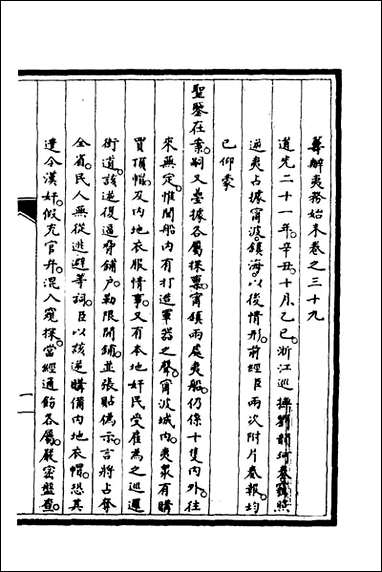 籌辦夷務始末卷之三十九
道光二十一年。辛丑。十月乙巳。浙江巡撫劉韻珂奏竊照
逆夷占據甯波。鎮海。以後情形。前經臣兩次附片奏報。均
已仰蒙
聖鑒在案。嗣又疊據各屬探稟。甯鎮兩處夷船。仍係十隻內外。往
來無定。惟聞船內有打造軍器之聲。甯波城內。夷衆有購
買頂帽。及內地衣服情事。又有本地奸民受雇。為之巡邏
街道。該逆復逼脅鋪户。勒限開鋪。並張貼偽示。言將占奪
全省。民人無從逃避等詞。臣以該逆購備內地衣帽。恐其
遣令漢奸。假充官弁。混入窺探。當經通飭各屬。嚴密盤查。